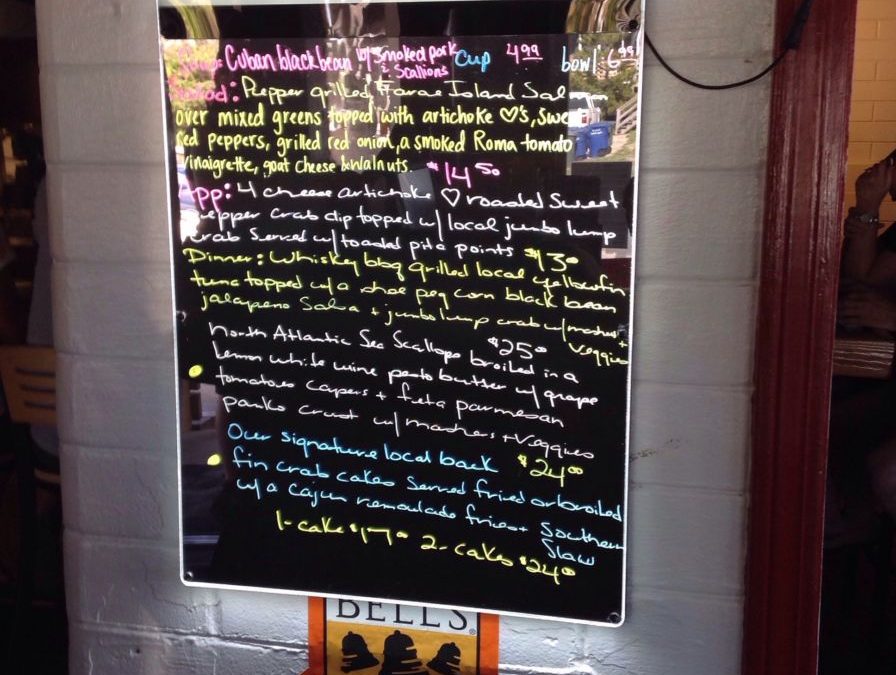 Soup: Cuban black bean w/ smoked pork & Scallions Cup 4.99 bowl 6.99
Salad: Pepper grilled Faroe Island Salmon
over mixed greens topped with artichoke ♡'s, sweet
red peppers, grilled red onion, a smoked Roma tomato
vinaigrette, goat cheese & walnuts. $14.50
App: 4 cheese artichoke ♡ roasted Sweet
pepper crab dip topped w/ local jumbo lump
crab Served w/ toasted pita points $13.00
Dinner: Whiskey bbq grilled local yellowfin
tuna topped w/ a shoe peg corn black bean
jalapeno Salsa + jumbo lump crab w/ mashers +
veggies
$25.00
North Atlantic Sea Scallops broiled in a
lemon white wine pesto butter w/ grape
tomatoes capers + feta parmesan
panko crust w/ mashers + Veggies
$24.00
Our signature local back
fin crab cakes Served fried or broiled
w/ a Cajun remoulade fries + Southern
Slaw
1-cake $17.00 2-cakes $24.00
BELL'S